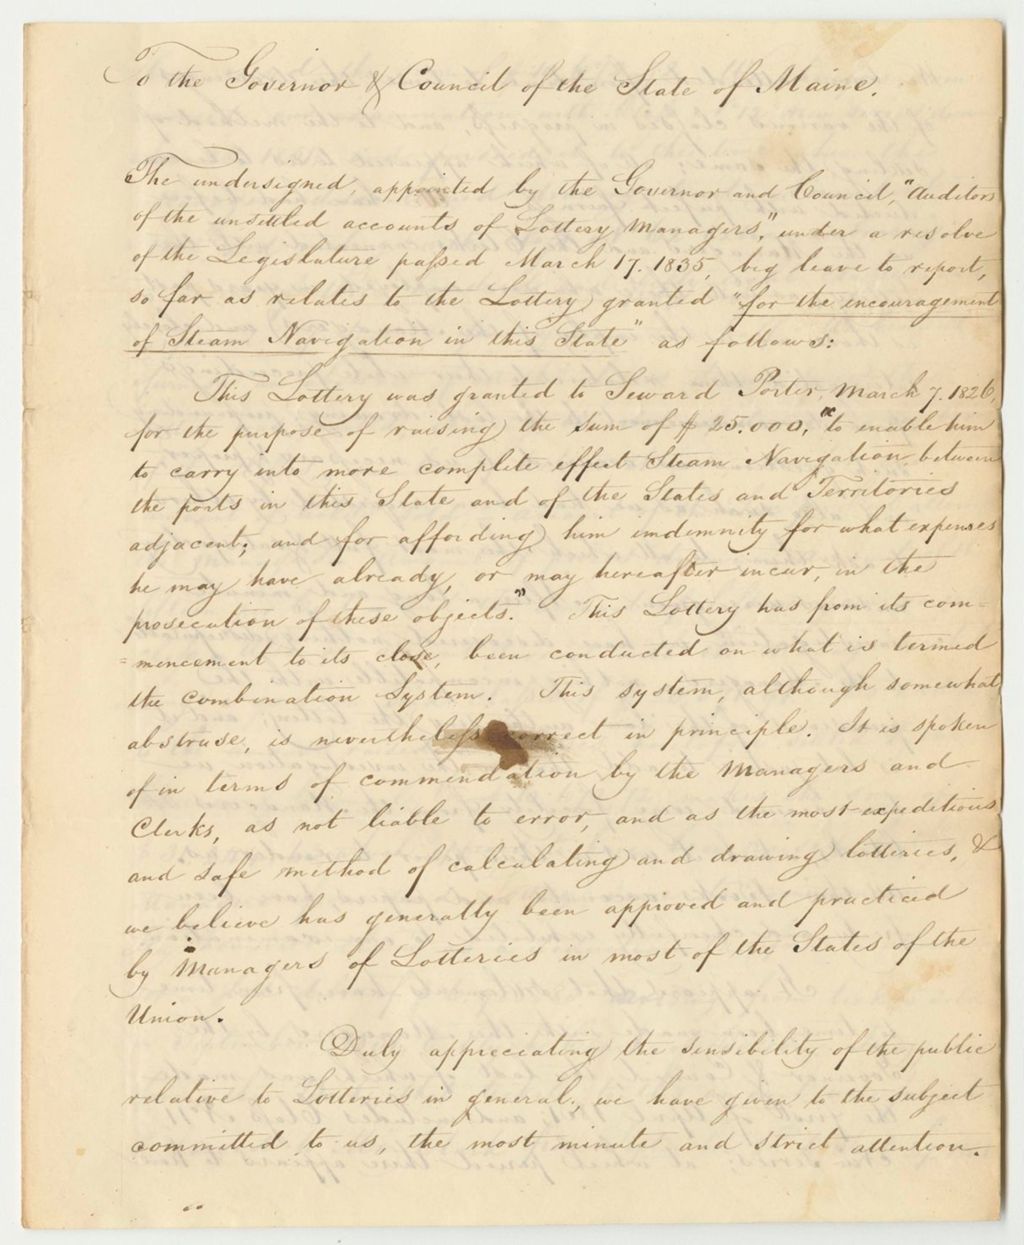 To the Governor & Council of the State of Maine.
The undersigned, appointed by the Governor and Council, "Auditors
of the unsettled accounts of Lottery Managers", under a resolve
of the Legislature passed March 17. 1835, beg leave to report,
so far as relates to the Lottery granted "for the encouragement
of Steam Navigation in this State" as follows:
This Lottery was granted to Seward Porter, March 7. 1826,
for the purpose of raising the sum of $25.000, "to enable him
to carry into more complete effect Steam Navigation between
the ports in this State and of the States and Territories
adjacent; and for affording him indemnity for what expenses
he may have already, or may hereafter incur, in the
prosecution of these objects." This Lottery has from its com-
=mencement to its close, been conducted on what is termed
the combination System. This system, although somewhat
abstruse, is nevertheless correct in principle. It is spoken
of in terms of commendation by the Managers and
Clerks, as not liable to error, and as the most expeditious
and safe method of calculating and drawing lotteries, &
we believe has generally been approved and practiced
by Managers of Lotteries in most of the States of the
Union.
Duly appreciating the sensibility of the public
relative to Lotteries in general, we have given to the subject
committed to us, the most minute and strict attention.